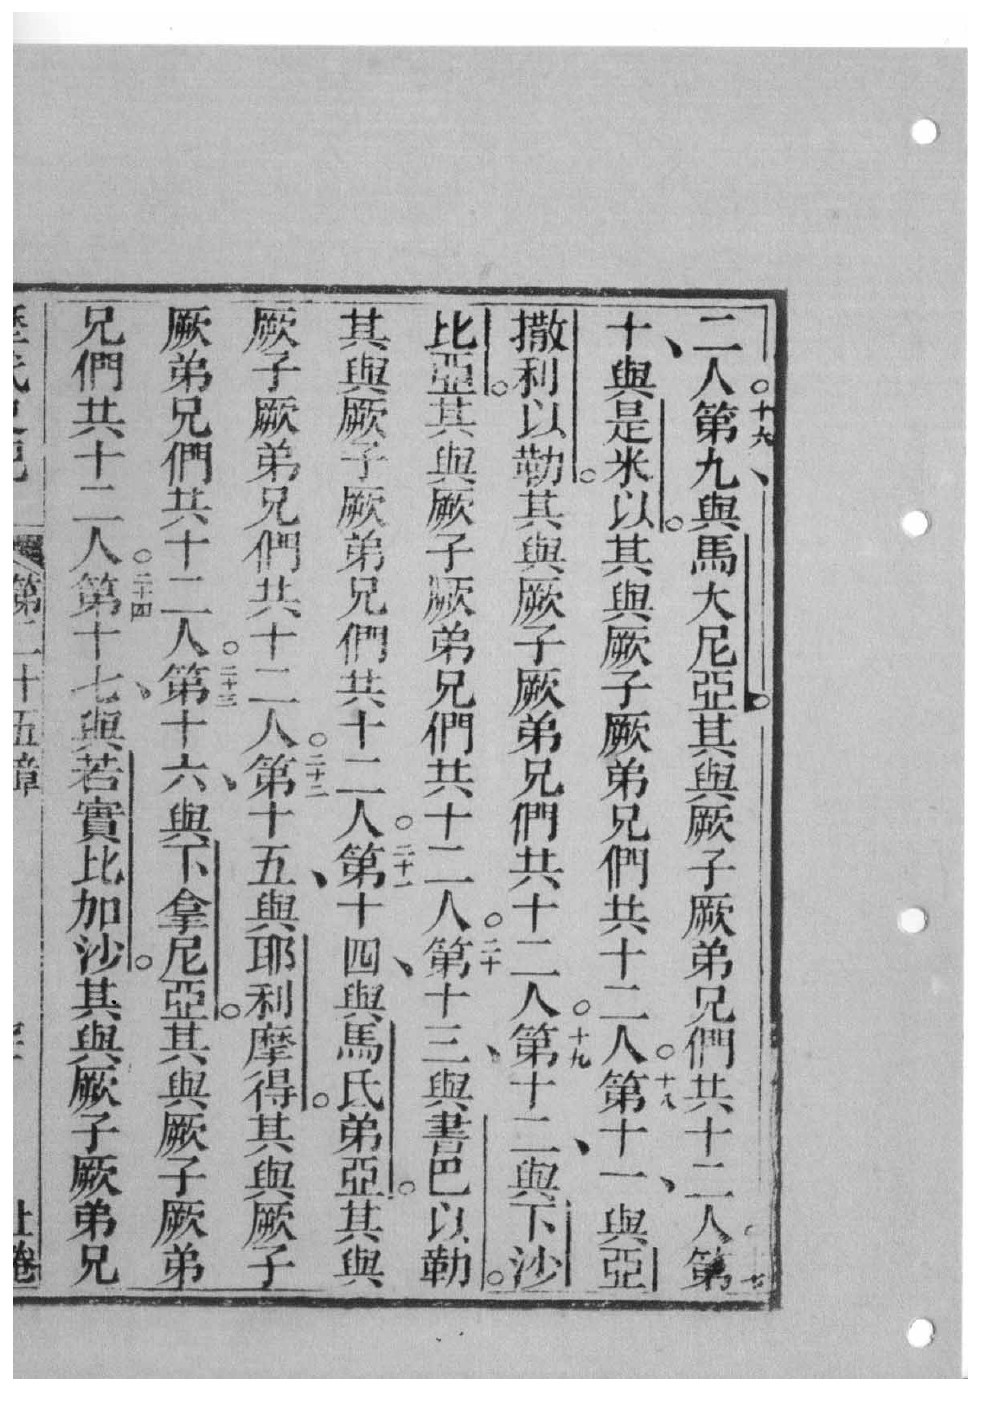 二人。十六第九、與馬大尼亞。其與厥子厥弟兄們共十二人。十七第
十、與是米以。其與厥子厥弟兄們共十二人。十八第十一、與亞
撒利以勒。其與厥子厥弟兄們共十二人。十九第十二、與下沙
比亞。其與厥子厥弟兄們共十二人。二十第十三、與書巴以勒。
其與厥子厥弟兄們共十二人。二十一第十四、與馬氏弟亞。其與
厥子厥弟兄們共十二人。二十二第十五、與耶利摩得。其與厥子
厥弟兄們共十二人。二十三第十六、與下拿尼亞。其與厥子厥弟
兄們共十二人。二十四第十七、與若實比加沙。其與厥子厥弟兄
歷代史紀 第二十五章 上卷